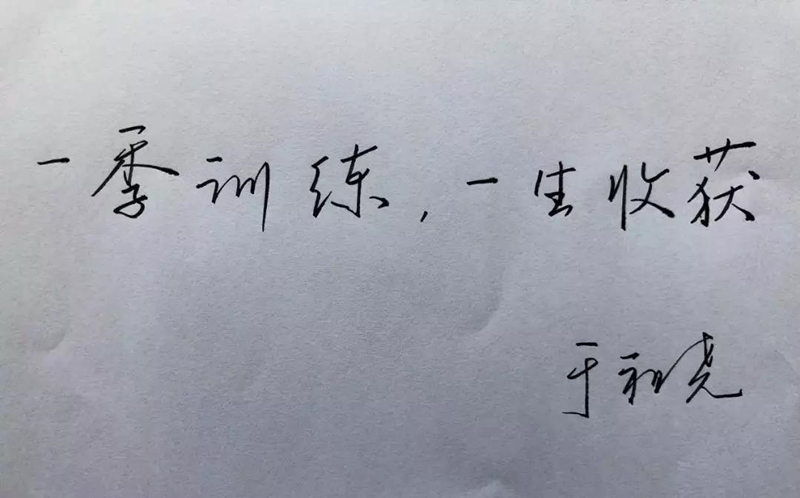 一季训练，一生收获
于祖尧